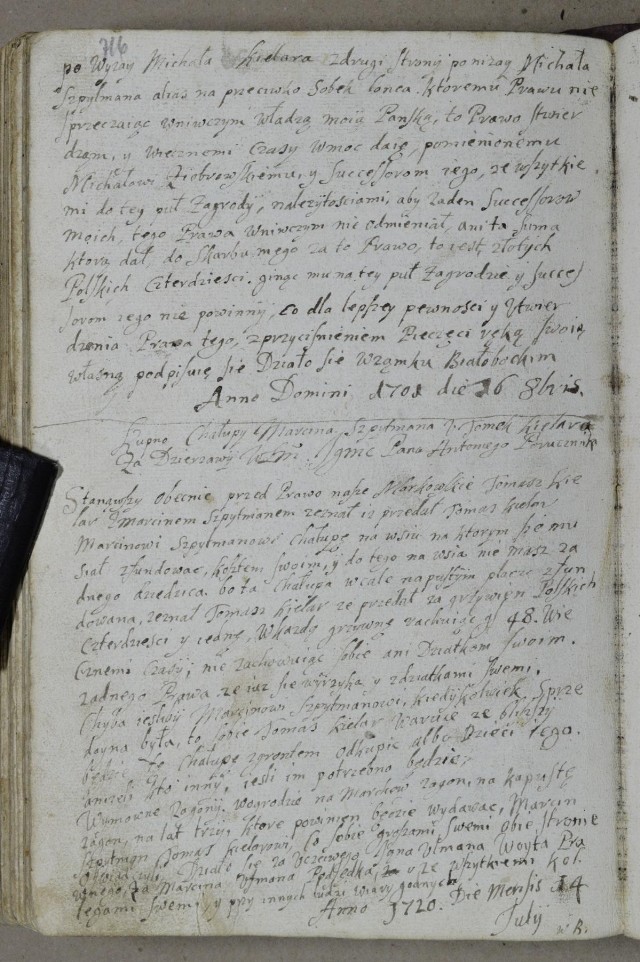 716
po Wyzay Michała Kielara z drugi strony ponizay Michała
Szpytmana alias na przeciwko Sobek łonca. Ktoremu Prawu nie
sprzeczaiąc wniwczym władzą moią Pańską, to Prawo stwier
dzam, y wiecznemi czasy w moc daię, pomienionemu
Michałowi Piotrowskiemu, y Successorom iego, ze wszytkie
mi do tey puł Zagrody, nalezytosciami, aby zaden Successorow
moich, tego Prawa wniwczym nie odmieniał, ani ta suma
ktorą dał, do skarbu mego za to Prawo, to iest złotych
Polskich czterdziesci. ginąc mu na tey puł Zagrodzie y Succes
sorom iego nie powinny, co dla lepszey pewnosci y utwier
dzenia Prawa tego, z przycisnieniem Pieczęci ręką swoią
własną podpisuię sie Działo sie w zamku Białobockim
Anno Domini 1701 die 16 8bris.
Kupno Chałupy Marcina Szpytmana u Tomek Kielara
Za Dzierzawy Pana Antoniego
Stanąwszy obecnie przed Prawo nasze Markowskie Tomasz Kie
lar z Marcinem Szpytmanem zeznał isz przedał Tomasz Kielar
Marcinowi Szpytmanowi Chałupę na wsiu na ktorym sie mu
siał zfundowac, kosztem swoim, y do tego na wsia nie masz za
dnego dziedzica, bo ta Chałupa wcale na pustym placu zfun
dowana, zeznał Tomasz Kielar ze przedał za grzywien Polskich
Czterdziesci y iedne, w kazdy grzywne rachuiąc g 48. Wie
cznemi czasy, nie zachowuiąc sobie ani Dziatkom swoim.
zadnego Prawa ze iuz sie wyrzyka y z dziatkami swemi.
Chyba iesliby Marcinowi Szpytmanowi, kiedyskolwiek Sprze
dayna była, to sobie Tomasz Kielar waruie ze bliszszy
będzie to Chałupe zgrontem odkupic albo Dzieci iego.
anizeli kto inny, iesli im potrzebno będzie,
Wymowne Zagony, w ogrodzie na Marchow zagon, na kapustę
zagon, na lat trzy, ktore powinien będzie wydawac, Marcin
Szpytman Tomasz Kielarowi, co sobie grszami swemi obie stronie
Działo sie za Uczciwego Jona Ulmana Woyta Pra
wnego, za Marcina Ulmana Podsędka, ze wszytkiemi kol
legami swemi, y przy innych ludzi wiary godnych
Anno 1720. Die Mensis 14
Julÿ